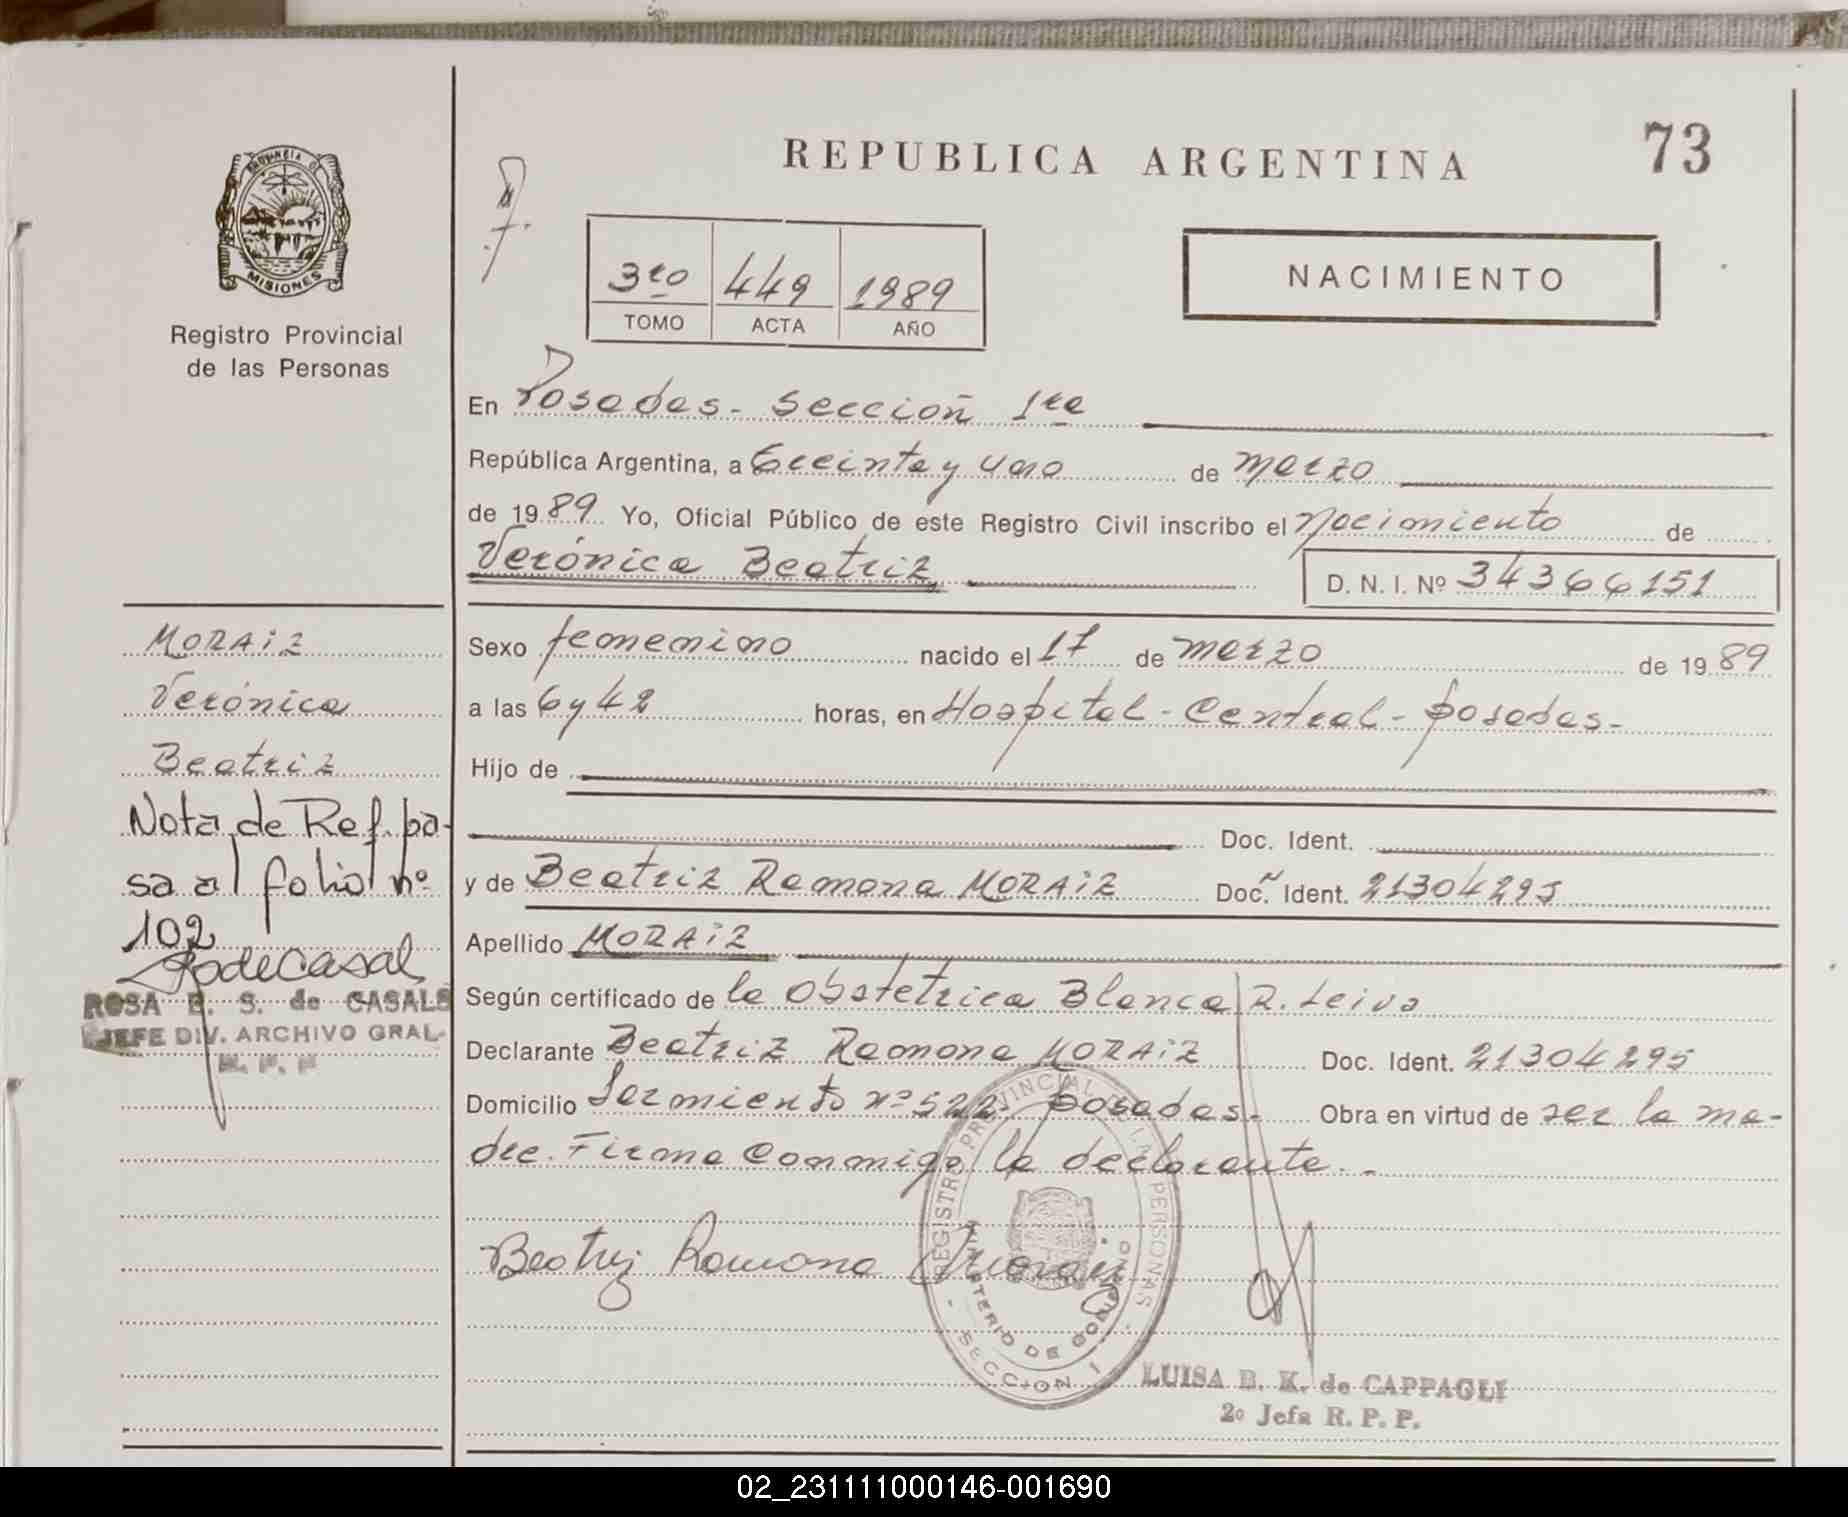 REPUBLICA ARGENTINA
73
PROVINCIA DE
MISIONES
Registro Provincial
de las Personas
3ro 449 1989
TOMO ACTA AÑO
NACIMIENTO
En Posadas - Sección 1ra
República Argentina, a treinta y uno de marzo
de 1989 Yo, Oficial Público de este Registro Civil inscribo el Nacimiento de
Verónica Beatriz
D. N. I. Nº 34366151
Sexo femenino nacido el 17 de marzo de 1989
a las 6 y 42 horas, en Hospital - Central - Posadas -
Hijo de
Doc. Ident.
y de Beatriz Ramona MORAiZ Doc. Ident. 21304295
Apellido MORAiZ
Según certificado de la Obstetrica Blanca R. Leiva
Declarante Beatriz Ramona MORAiZ Doc. Ident. 21304295
Domicilio Sarmiento nº 522 - Posadas - Obra en virtud de ser la ma-
dre. Firma conmigo la declarante. -
Beatriz Ramona Moraiz
REGISTRO PROVINCIAL DE LAS PERSONAS
MINISTERIO DE GOBIERNO
- SECCION I -
LUISA B. K. de CAPPAGLI
2º Jefa R. P. P.
MORAiZ
Verónica
Beatriz
Nota de Ref. pa-
sa al folio nº
102
RodeCasal
ROSA E. S. de CASALS
JEFE DIV. ARCHIVO GRAL.
R. P. P
02_231111000146-001690